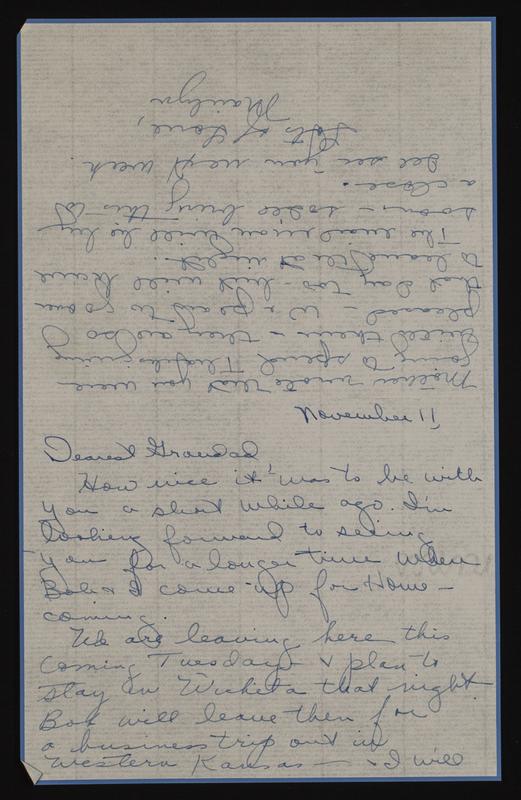 November 11
Dearest Grandad
How nice it was to be with
you a short while ago. I'm
looking forward to seeing
you for a longer time when
Bob & I come up for Home-
coming.
We are leaving here this
coming Tuesday & plan to
stay in Wichita that night
Bob will leave then for
a business trip out in
Western Kansas — & I will
Mother wrote that you were
going to spend Thanksgiving
with them - they are so
pleased - We plan to come
that day too - but will have
to leave
The mail man will be by
soon - so I'll bring this to
a close.
See you next week
Lots of Love,
Marilyn